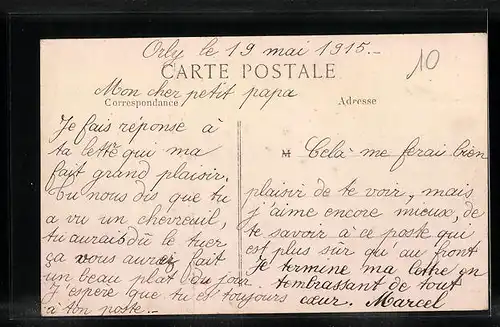 Orly le 19 mai 1915.-
10
CARTE POSTALE
Mon cher petit papa
Correspondance
Adresse
Je fais réponse à
ta lettre qui ma
fait grand plaisir.
Tu nous dis que tu
a vu un chevreuil,
tu aurais dû le tuer
ça vous aurez fait
un beau plat du jour
J'espère que tu es toujours
à ton poste.-
M
Celà me ferai bien
plaisir de te voir, mais
j'aime encore mieux, de
te savoir à ce poste qui
est plus sûr qu'au front
Je termine ma lettre en
t'embrassant de tout
cœur. Marcel